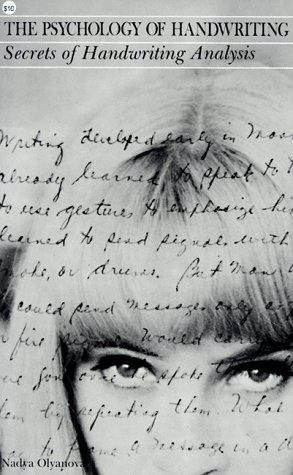 $10
THE PSYCHOLOGY OF HANDWRITING
Secrets of Handwriting Analysis
Writing developed early in
already learned to speak to
to use gestures to emphasize
learned to send signals with
or drums. But Man
could send messages only
fire would
gone over spoke
by repeating them. What
a message in a
Nadya Olyanova